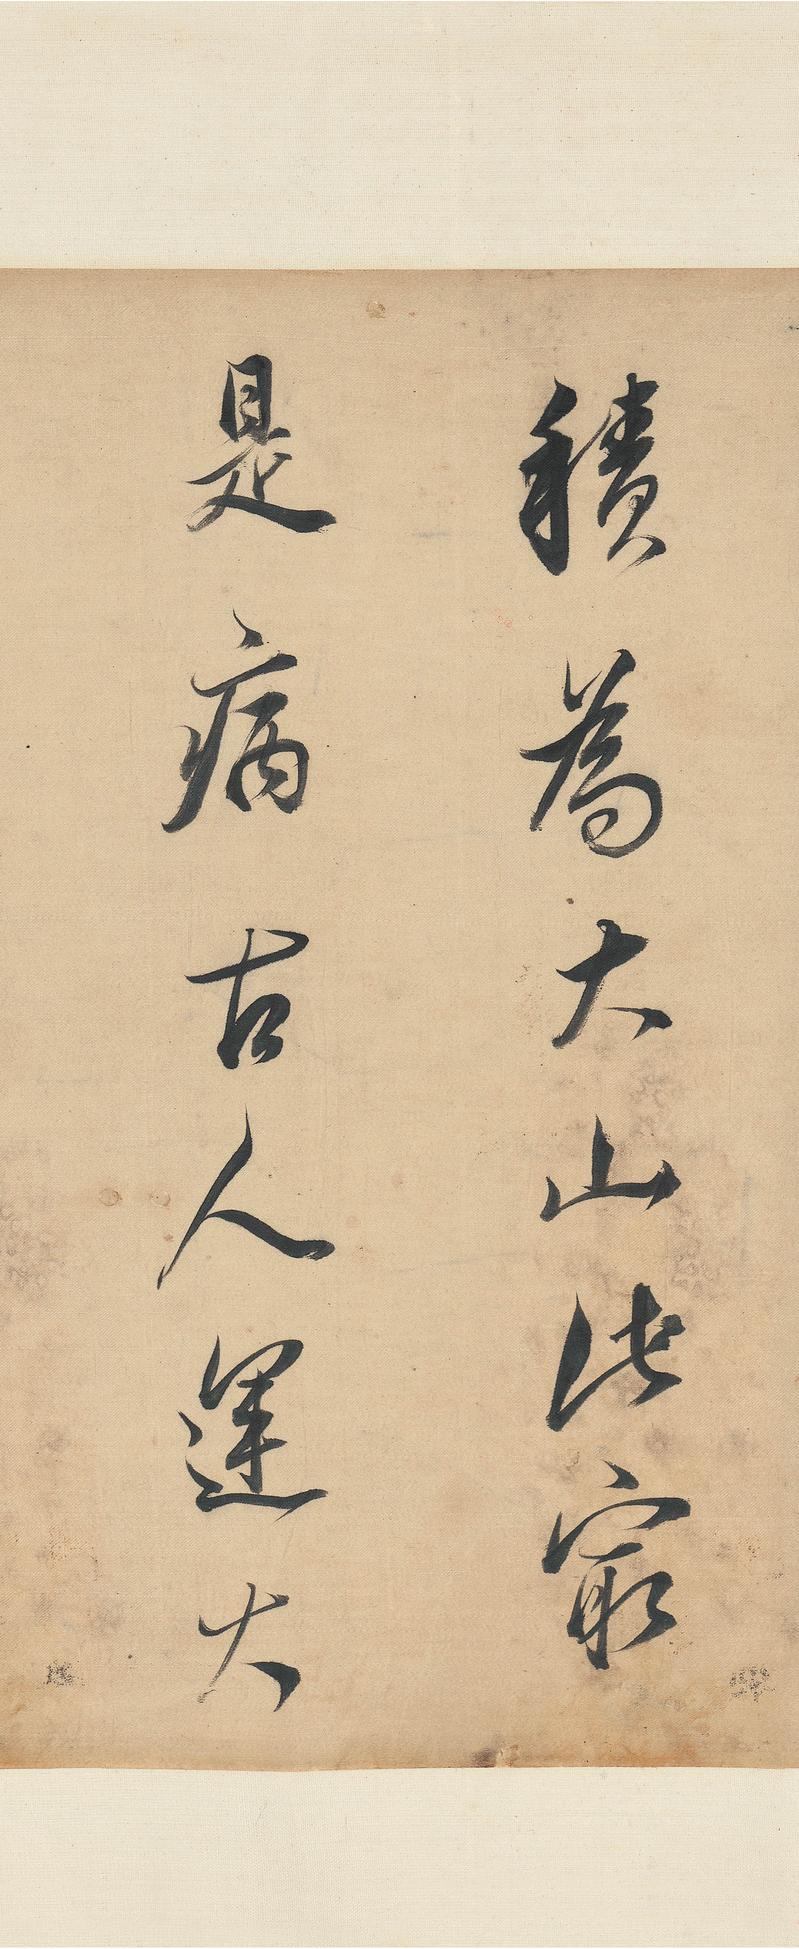 積為大山此寂
是病古人運大